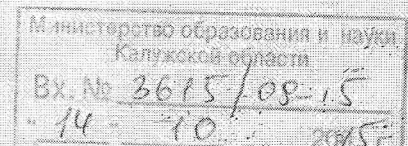 Министерство образования и науки
Калужской области
Вх. № 3615/09-15
" 14 " 10 2015